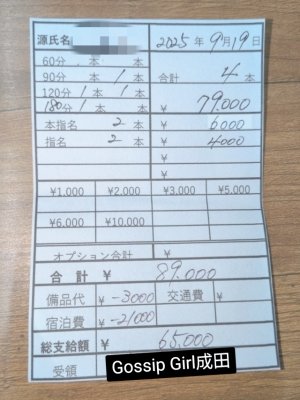 源氏名 2025年9月19日
60分 本 本 合計 4本
90分 本 1本
120分 1本 1本 ¥79.000
180分 1本 本 ¥
本指名 2本 ¥6000
指名 2本 ¥4000
¥
¥
¥1,000 ¥2,000 ¥3,000 ¥5,000
¥6,000 ¥10,000
オプション合計 ¥
合計 ¥ 89.000
備品代 ¥-3000 交通費 ¥
宿泊費 ¥-21000
総支給額 ¥ 65.000
受領
Gossip Girl成田